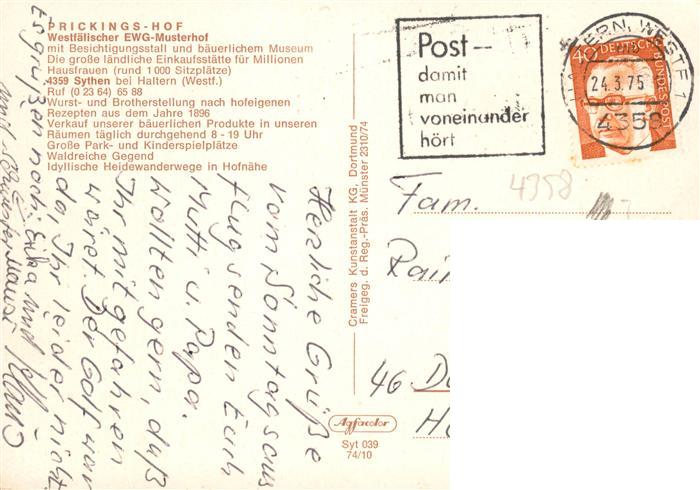 PRICKINGS-HOF
Westfälischer EWG-Musterhof
mit Besichtigungsstall und bäuerlichem Museum
Die große ländliche Einkaufsstätte für Millionen
Hausfrauen (rund 1 000 Sitzplätze)
4359 Sythen bei Haltern (Westf.)
Ruf (0 23 64) 65 88
Wurst- und Brotherstellung nach hofeigenen
Rezepten aus dem Jahre 1896
Verkauf unserer bäuerlichen Produkte in unseren
Räumen täglich durchgehend 8 - 19 Uhr
Große Park- und Kinderspielplätze
Waldreiche Gegend
Idyllische Heidewanderwege in Hofnähe
Herzliche Grüße
vom Sonntagsaus
flug senden Euch
Mutti u. Papa.
Wollten gern, daß
Ihr mitgefahren
wäret Der Golf war
da, Ihr leider nicht.
Es grüßen noch: Erika und Klaus
und
Cramers Kunstanstalt KG, Dortmund
Freigeg. d. Reg.-Präs. Münster 2310/74
Agfacolor
Syt 039
74/10
Post --
damit
man
voneinander
hört
HALTERN, WESTF 1
24.3.75
4358
40 DEUTSCHE BUNDESPOST
4358
Fam.
46